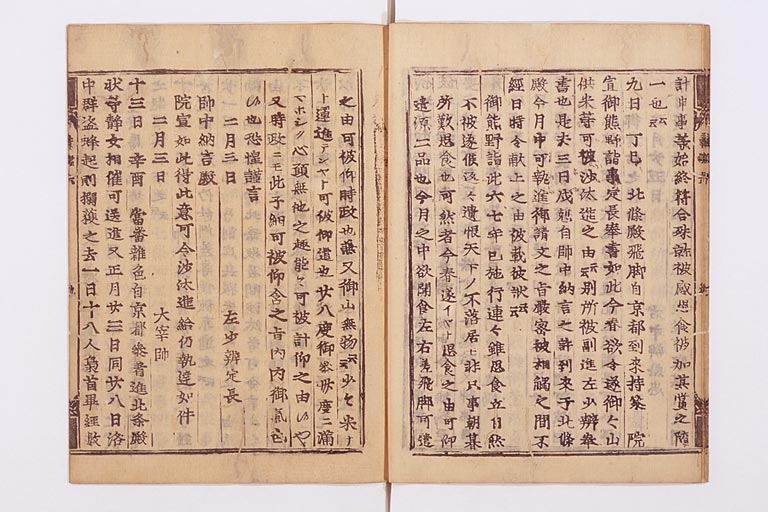 計申事等始終符合殊被感思食被加其賞之随
一也云云
九日 丁巳 北條殿飛脚自京都到来持参 院
宣御熊野詣事定長奉書如此今春欲令遂御々山
供米等可被沙汰進之由云云別所被副進左少辨奉
書也是去三日戌剋自師中納言之許到来于北條
殿今月中可執進御請文之旨嚴密被相觸之間不
經日時令献上之由被載彼状云云
御熊野詣此六七年已施行連々雖思食立自然
不被遂候返々遺恨天下ノ不落居モ非只事朝暮
所歎思食也可然者今春遂イハヤト思食之由可仰
遣源二品也今月之中欲聞食左右差飛脚可遣
之由可被仰時政也兼又御山無物云云少々米ナ
ト運進テシヤト可被仰遣也廿八度御参廿度ニ滿
マホシク心頭無他之趣能々可被計仰之由候ヤ
又時政ニモ此子細可被仰含之旨内内御氣色
候也恐惶謹言
二月三日 左少辨定長
師中納言殿
院宣如此得此意可令沙汰進給仍執達如件
二月三日 大宰帥
十三日 辛酉 當番雜色自京都参着進北条殿
状等静女相催可送進又正月廿三日同廿八日洛
中群盗蜂起則搦獲之去一日十八人梟首畢經数